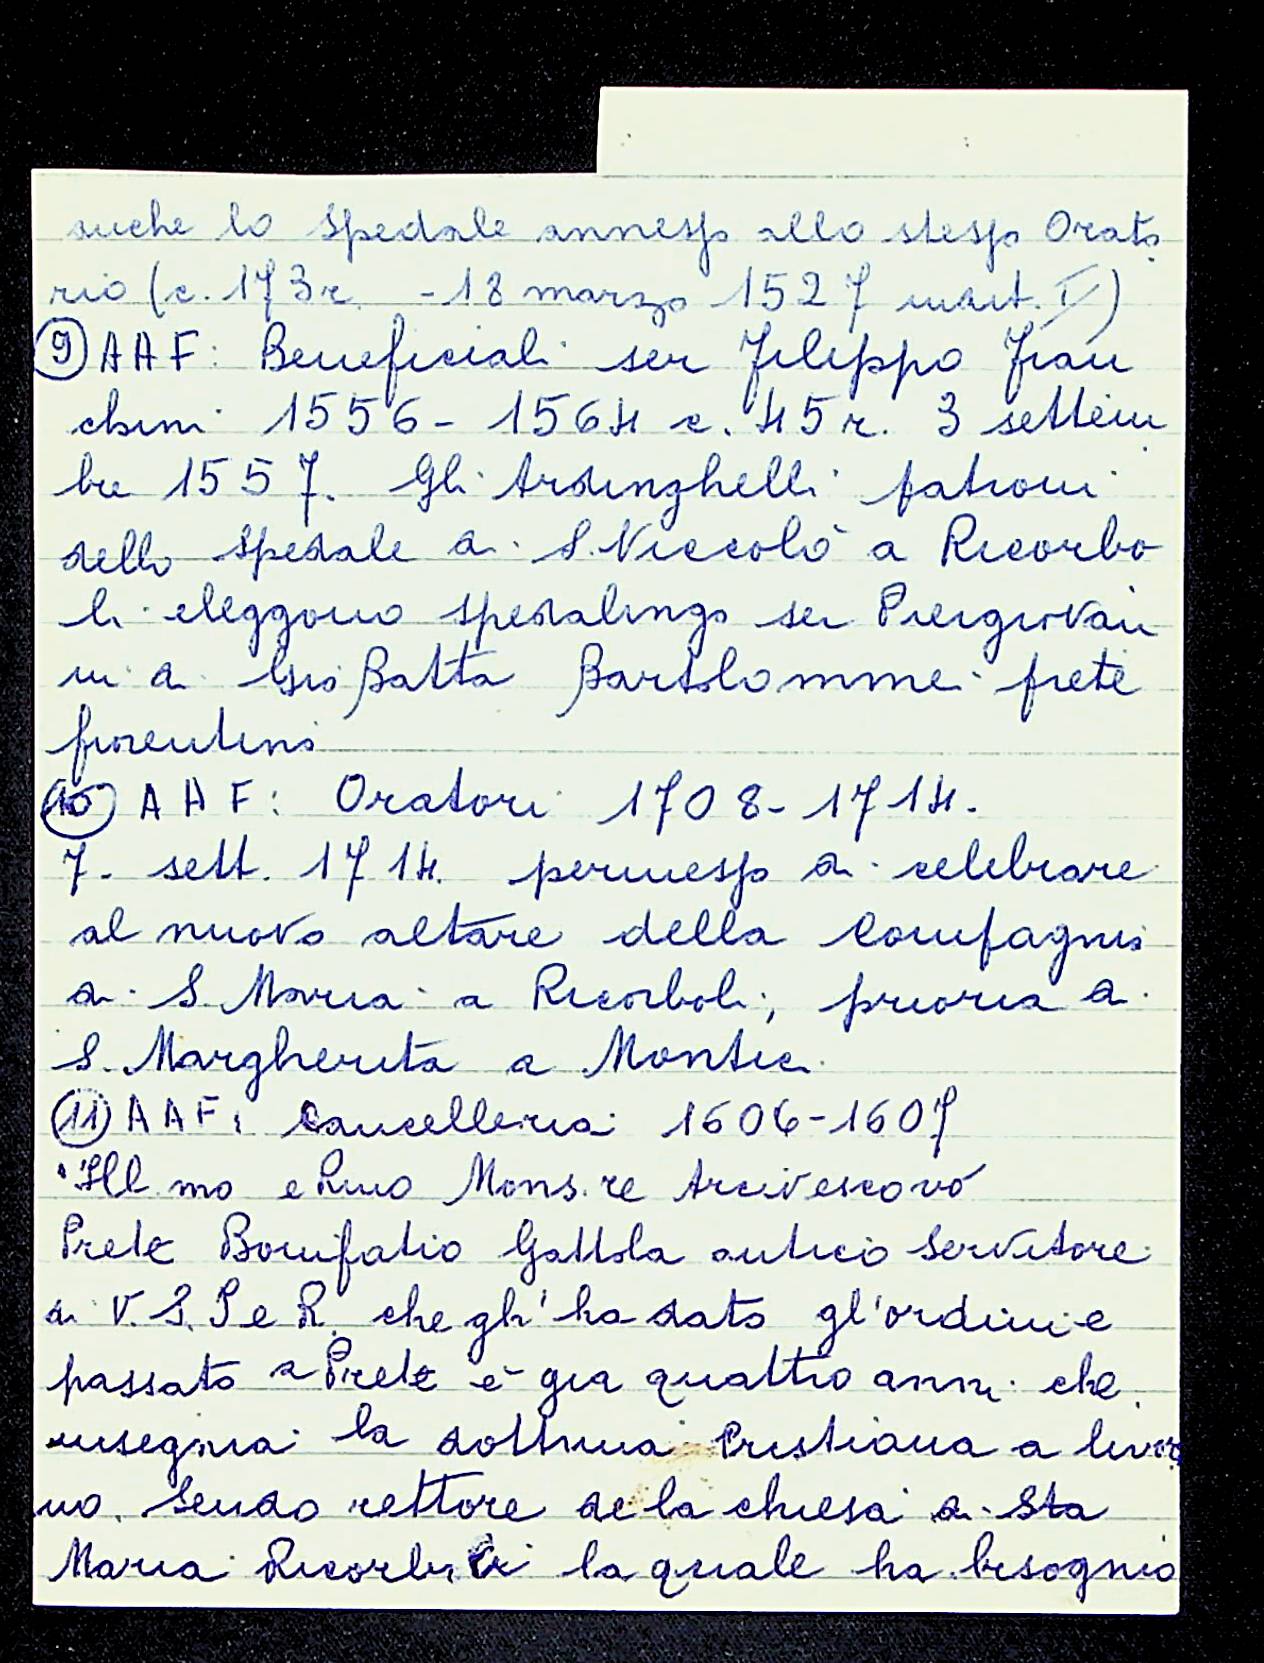 anche lo spedale annesso allo stesso Orato
rio (c. 173r. - 18 marzo 1527
9 AAF: Beneficiali ser Filippo Fran
chini 1556-1564 c. 45r. 3 settem
bre 1557. Gli Ardinghelli patroni
dello spedale di S. Niccolò a Ricorbo
li eleggono spedalingo ser Piergiovan
ni di Gio Batta Bartolommei prete
fiorentino
10 AAF: Oratori 1708-1714.
7. sett. 1714. permesso di celebrare
al nuovo altare della Compagnia
di S. Maria a Ricorboli, prioria di
S. Margherita a Montici.
11 AAF: Cancelleria 1606-1607
"Ill.mo e Rmo Mons.re Arcivescovo
Prete Bonifatio Gattola antico servitore
di V. S. I e R. che gli ha dato gl'ordini e
passato a Prete è gia quattro anni che
insegnia la dottrina Cristiana a livor
no. Sendo rettore de la chiesa di Sta
Maria la quale ha bisognio